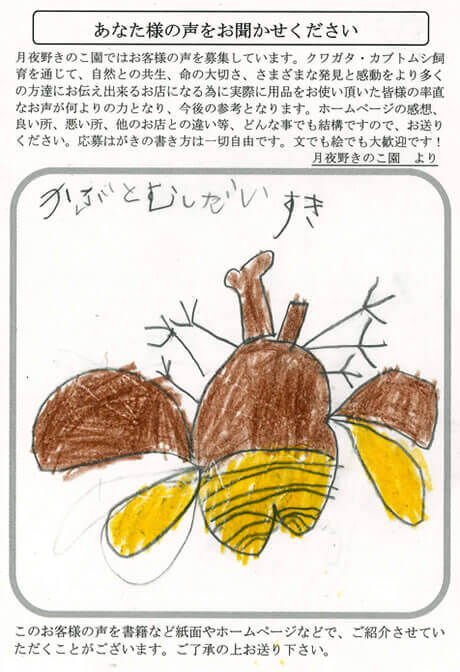 あなた様の声をお聞かせください
月夜野きのこ園ではお客様の声を募集しています。クワガタ・カブトムシ飼
育を通じて、自然との共生、命の大切さ、さまざまな発見と感動をより多く
の方達にお伝え出来るお店になる為に実際に用品をお使い頂いた皆様の率直
なお声が何よりの力となり、今後の参考となります。ホームページの感想、
良い所、悪い所、他のお店との違い等、どんな事でも結構ですので、お送り
ください。応募はがきの書き方は一切自由です。文でも絵でも大歓迎です！
月夜野きのこ園　より
かぶとむしだい すき
このお客様の声を書籍など紙面やホームページなどで、ご紹介させてい
ただくことがございます。ご了承の上お送り下さい。